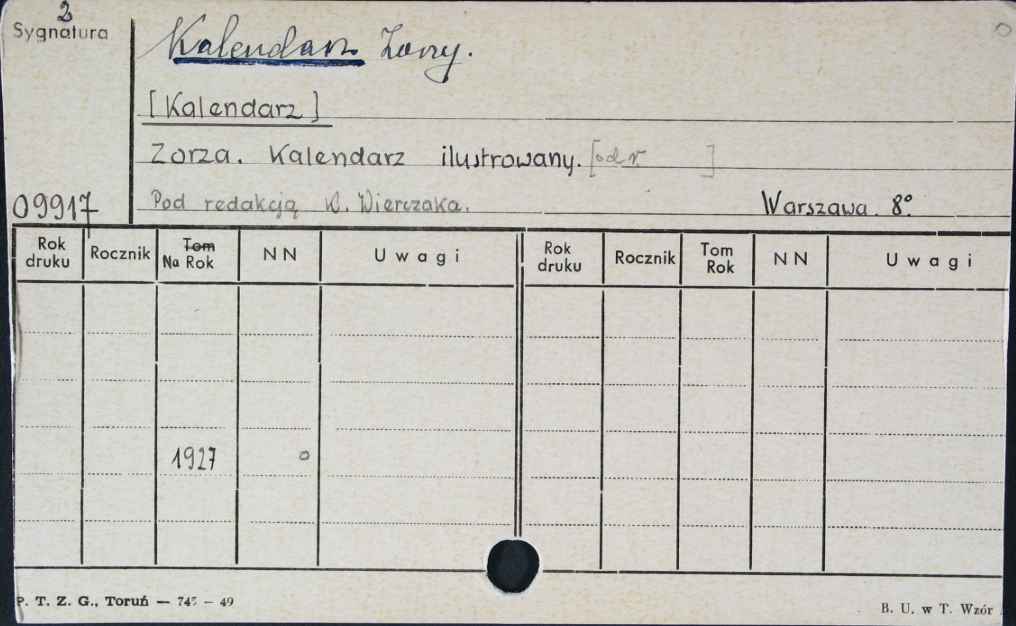 2
Sygnatura
Kalendarz Zorzy.
[Kalendarz]
Zorza. Kalendarz ilustrowany. [od r ]
09917
Pod redakcją W. Wierczaka. Warszawa. 8°.
Rok druku Rocznik Tom Na Rok NN Uwagi Rok druku Rocznik Tom Rok NN Uwagi
1927 o
P. T. Z. G., Toruń — 745 — 49
B. U. w T. Wzór